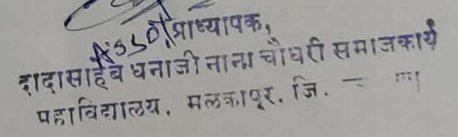 Asso. प्राध्यापक,
दादासाहेब धनाजी नाना चौधरी समाजकार्य
महाविद्यालय. मलकापूर. जि.